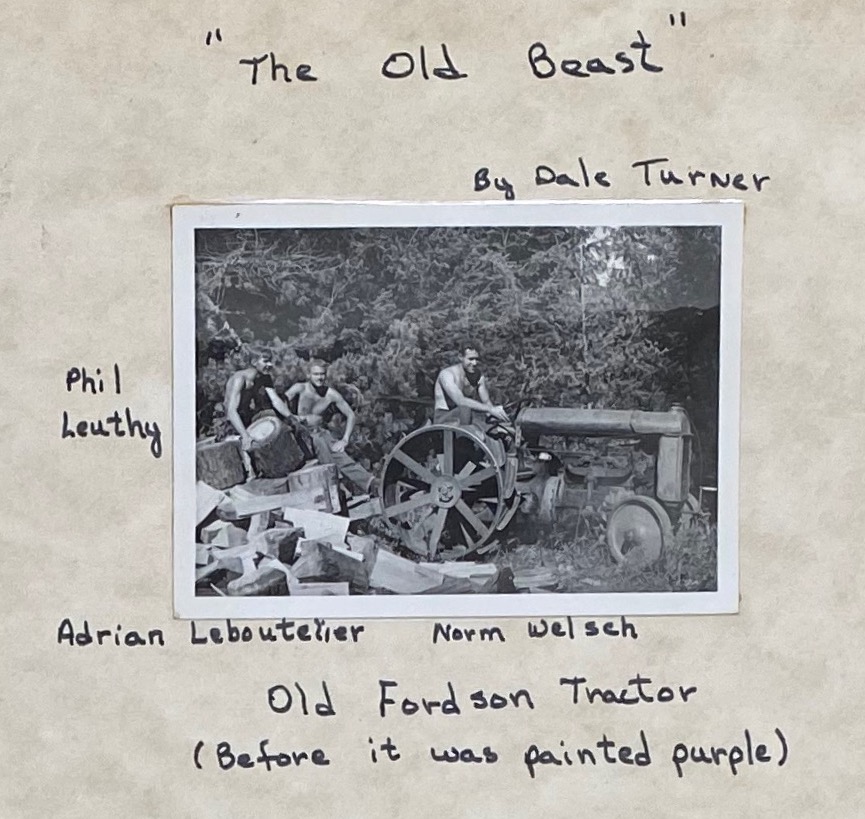 "The Old Beast"
By Dale Turner
Phil
Leuthy
Adrian Leboutelier Norm Welsch
Old Fordson Tractor
(Before it was painted purple)